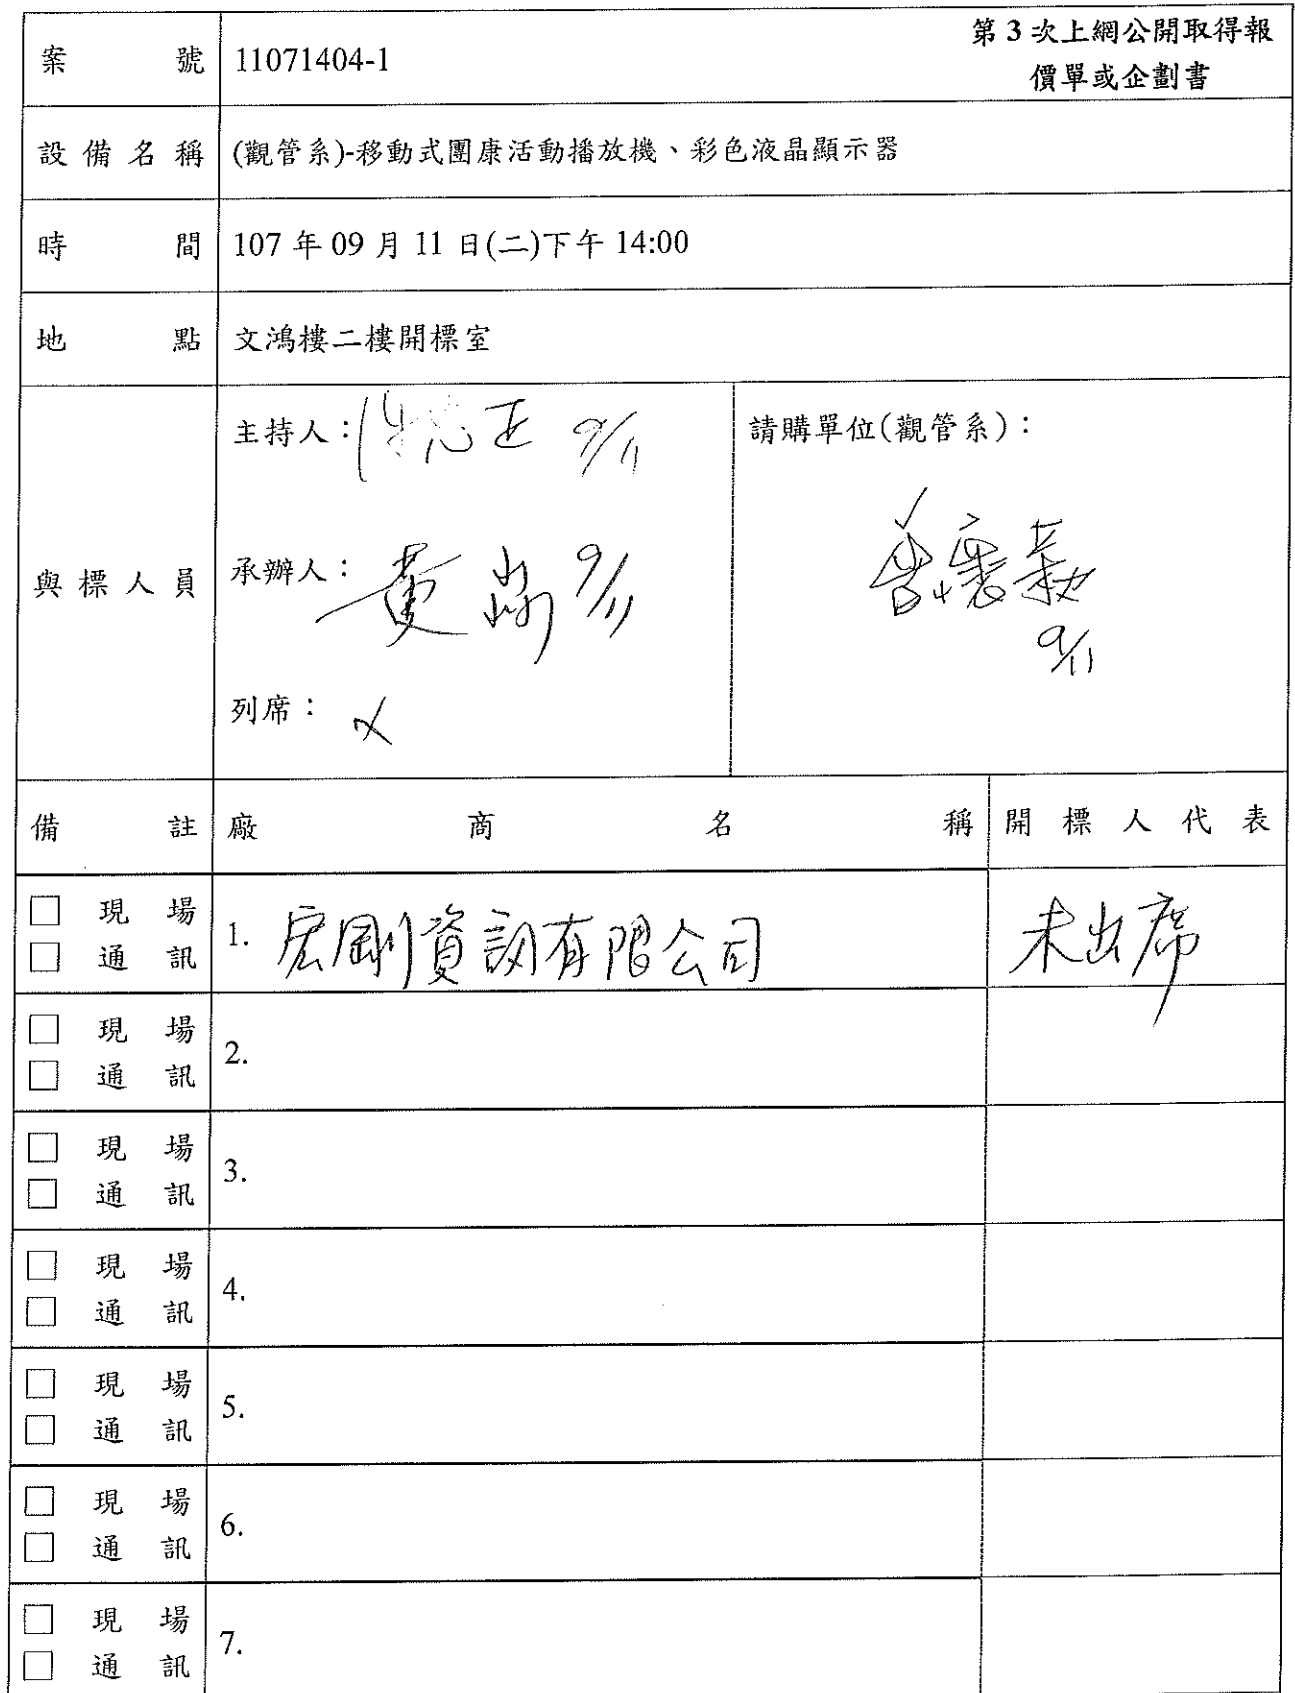 案號 11071404-1 第3次上網公開取得報
價單或企劃書
設備名稱 (觀管系)-移動式團康活動播放機、彩色液晶顯示器
時間 107 年 09 月 11 日(二)下午 14:00
地點 文鴻樓二樓開標室
與標人員
主持人： 正 9/11
承辦人：黃 9/11
列席：
請購單位(觀管系)：
9/11
備註 廠商名稱 開標人代表
□ 現場
□ 通訊
1. 宏剛資訊有限公司 未出席
□ 現場
□ 通訊
2.
□ 現場
□ 通訊
3.
□ 現場
□ 通訊
4.
□ 現場
□ 通訊
5.
□ 現場
□ 通訊
6.
□ 現場
□ 通訊
7.